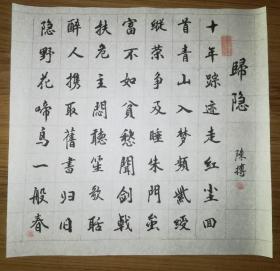 歸隐
陳搏
十年踪迹走红尘回
首青山入梦频紫绶
縱荣争及睡朱門虽
富不如貧愁聞剑戟
扶危主悶聽笙歌聒
醉人携取舊書归旧
隐野花啼鳥一般春